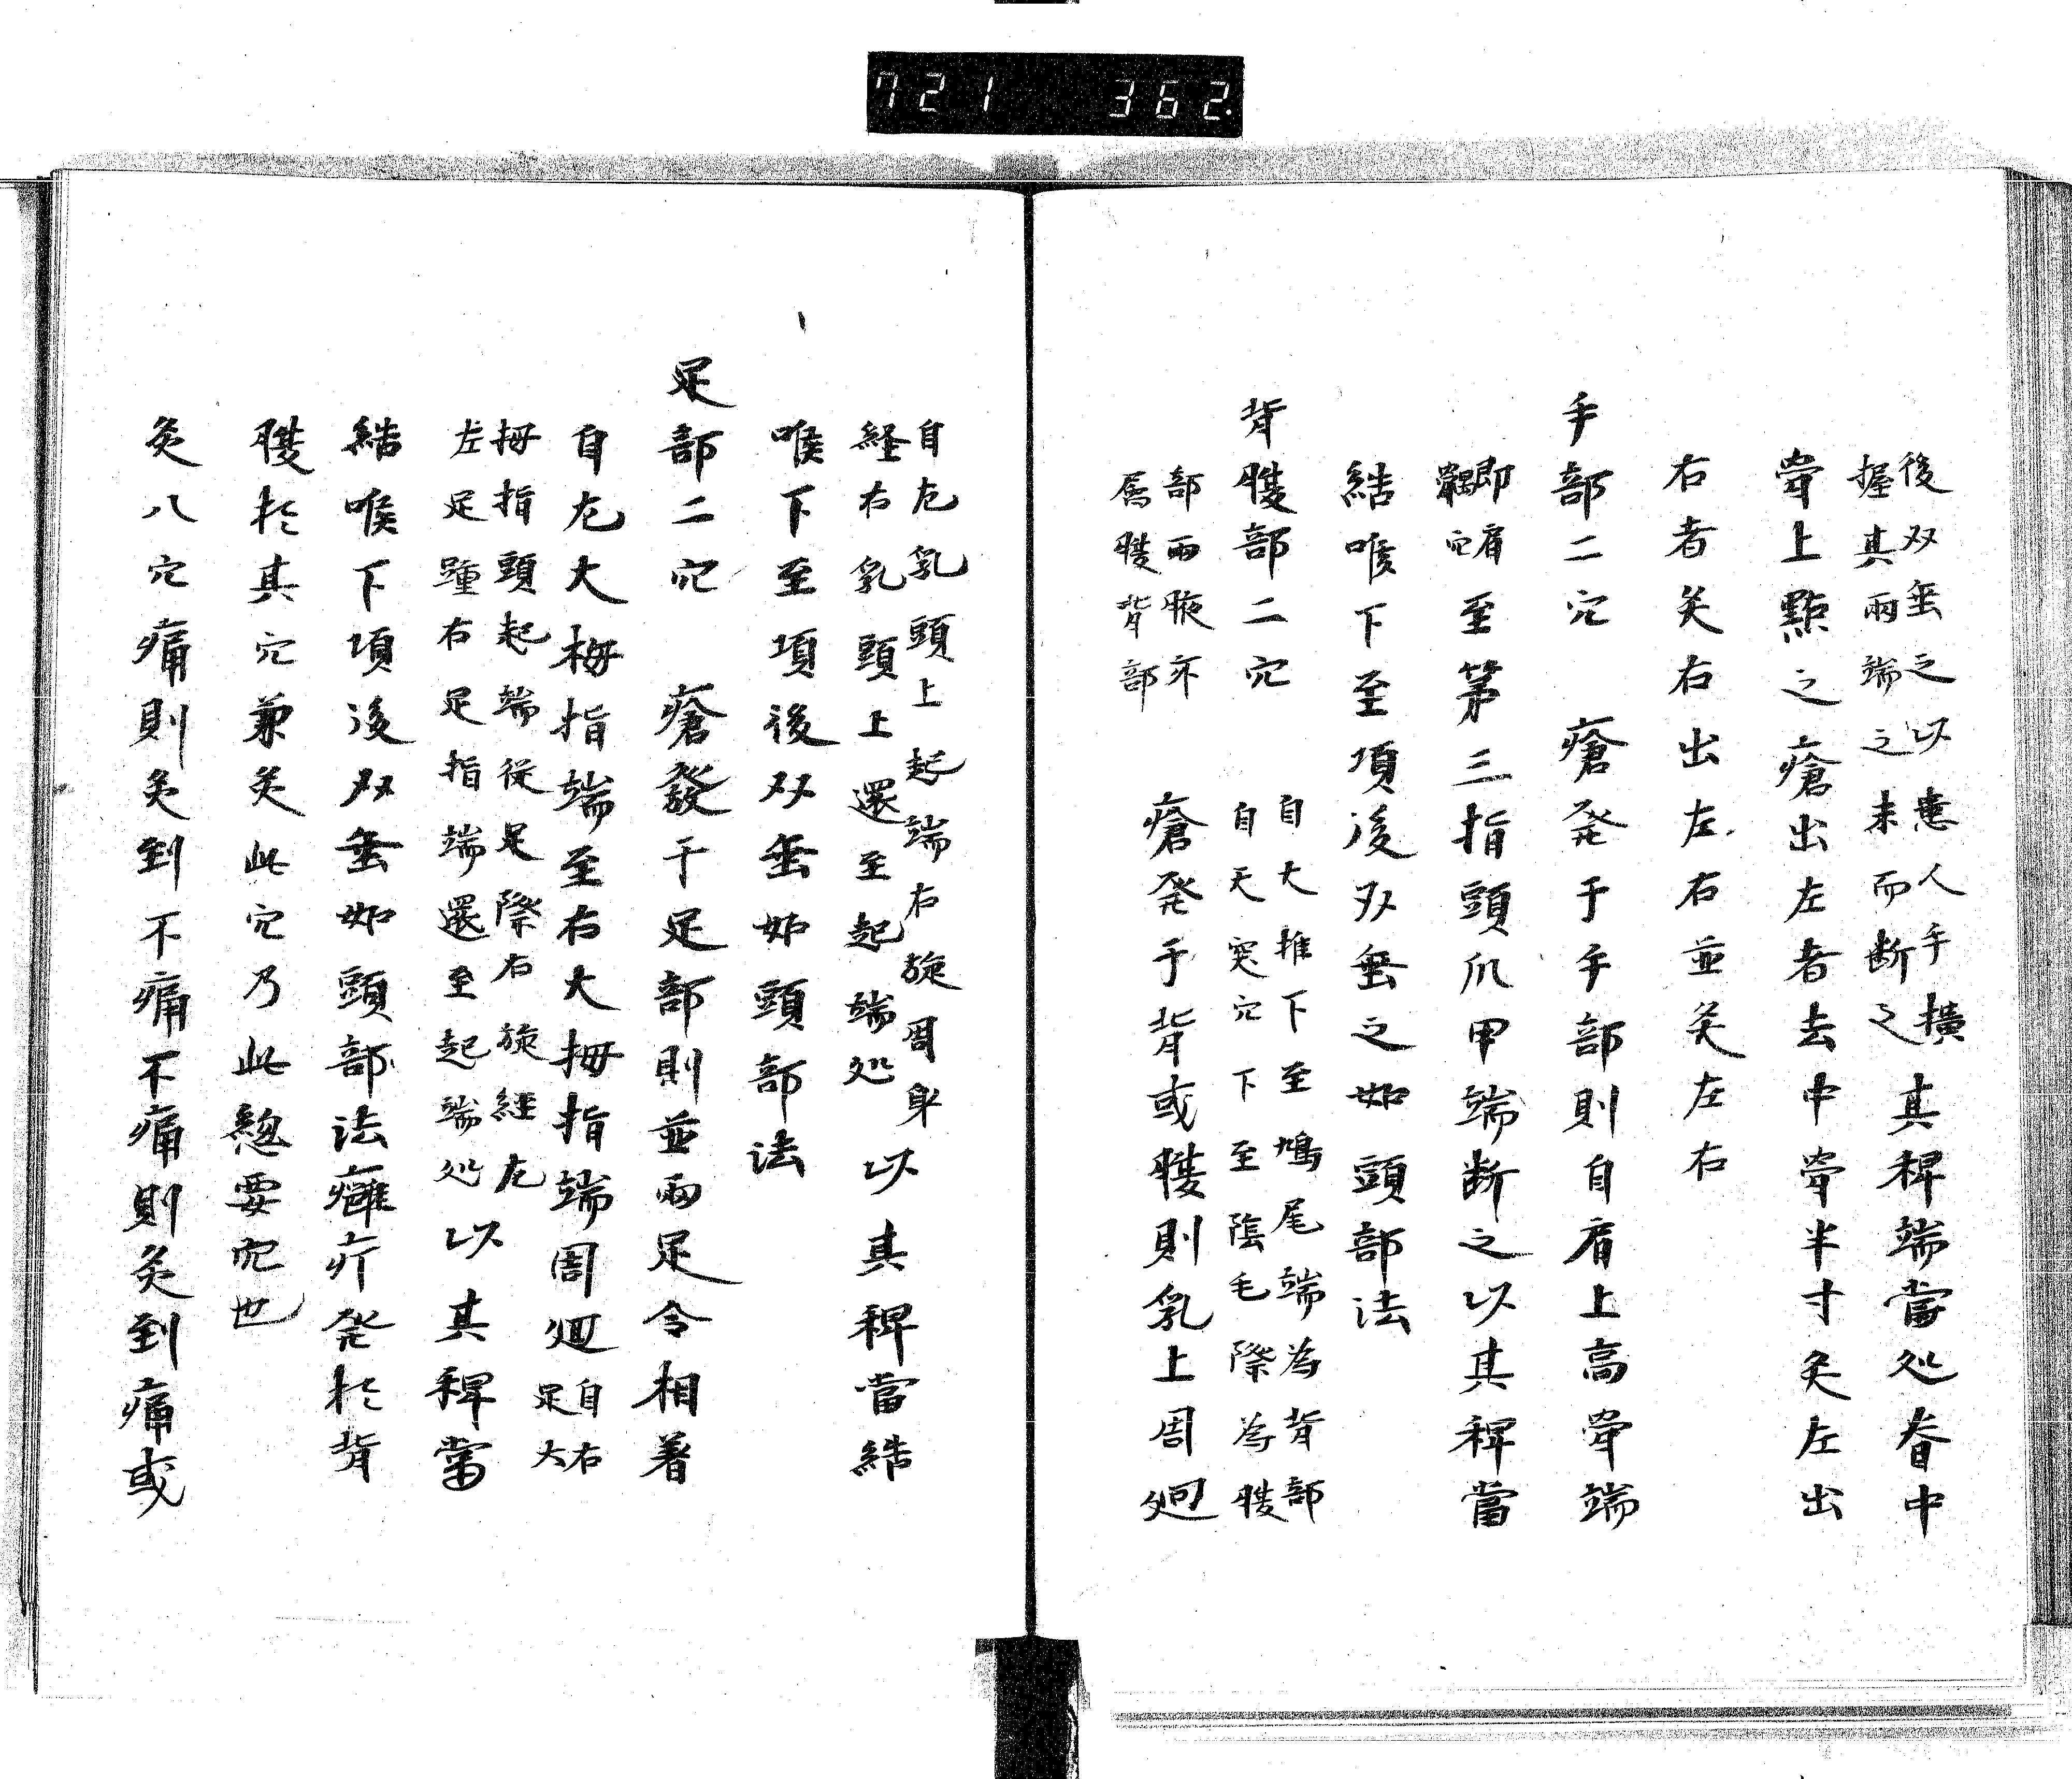 721 362.
後双垂之以患人手擴
握其兩端之未而断之
其稗端當処脊中
骨上點之瘡出左者去中骨半寸灸左出
右者灸右出左右並灸左右
手部二穴 瘡発于手部則自肩上高骨端
即肩
髃穴
至第三指頭爪甲端断之以其稗當
結喉下至項後双垂之如頭部法
背腰部二穴
自大推下至鳩尾端為背部
自天突穴下至陰毛際為腰
部兩腋亦
属腰背部
瘡発于背或腰則乳上周廻
自左乳頭上起端右旋周身
経右乳頭上還至起端処
以其稗當結
喉下至項後双垂如頭部法
足部二穴 瘡發于足部則並兩足令相着
自左大拇指端至右大拇指端周廻
自右
足大
拇指頭起端從足際右旋経左
左足踵右足指端還至起端処
以其稗當
結喉下項後双垂如頭部法癰疔発於背
腰於其穴兼灸此穴乃此緫要穴也
灸八穴痛則灸到不痛不痛則灸到痛或